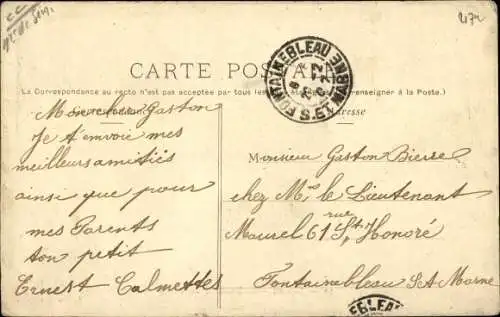 CARTE POSTALE
La Correspondance au recto n'est pas acceptée par tous les
renseigner à la Poste.)
FONTAINEBLEAU
S. ET MARNE
Mon cher Gaston
Je t'envoie mes
meilleurs amitiés
ainsi que pour
mes Parents
ton petit
Ernest Calmettes
Monsieur Gaston Bierre
chez Mr le Lieutenant
Maurel 61 rue St Honoré
Fontainebleau S et Marne
EBLEAU